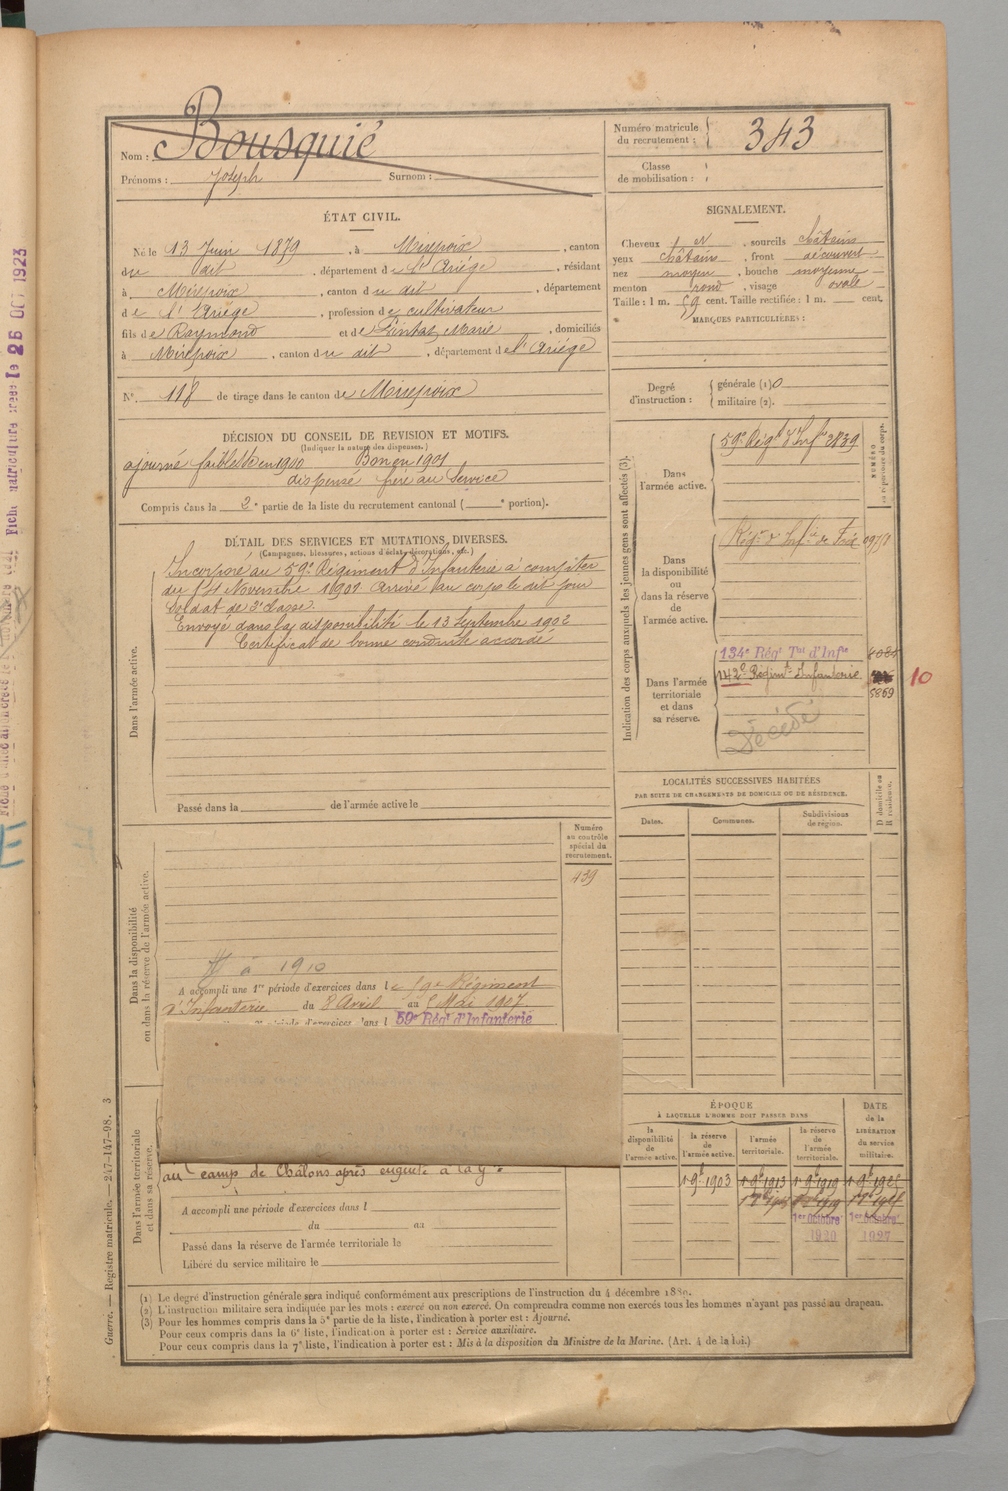 Nom : Bousquié
Prénoms : Joseph Surnom :
Numéro matricule du recrutement : 343
Classe de mobilisation :
ÉTAT CIVIL.
Né le 13 Juin 1879, à Mirepoix, canton
du dit, département de l'Ariège, résidant
à Mirepoix, canton du dit, département
de l'Ariège, profession de cultivateur
fils de Raymond et de Marie, domiciliés
à Mirepoix, canton du dit, département de l'Ariège
N° 118 de tirage dans le canton de Mirepoix
SIGNALEMENT.
Cheveux, sourcils châtains
yeux châtain, front découvert
nez moyen, bouche moyenne
menton rond, visage ovale
Taille : 1 m. 59 cent. Taille rectifiée : 1 m. cent.
MARQUES PARTICULIÈRES :
Degré d'instruction : générale (1) 0
militaire (2).
DÉCISION DU CONSEIL DE REVISION ET MOTIFS.
(Indiquer la nature des dispenses.)
ajourné faiblesse en 1900 Bon en 1901
dispensé frère au Service
Compris dans la 2e partie de la liste du recrutement cantonal ( e portion).
DÉTAIL DES SERVICES ET MUTATIONS DIVERSES.
(Campagnes, blessures, actions d'éclat, décorations, etc.)
Dans l'armée active.
Incorporé au 59e Régiment d'Infanterie à compter
du 14 Novembre 1901 Arrivé au corps le dit jour
Soldat de 2e classe.
Envoyé dans la disponibilité le 13 Septembre 1902
Certificat de bonne conduite accordé
Passé dans la de l'armée active le
Indication des corps auxquels les jeunes gens sont affectés (3).
NUMÉRO au répertoire du corps.
Dans l'armée active.
59e Régt d'Infie 2839
Dans la disponibilité ou dans la réserve de l'armée active.
Régt d'Infie de Foix
Dans l'armée territoriale et dans sa réserve.
134e Régt Tal d'Infie
142e Régimt Infanterie
5869
10
Décédé
LOCALITÉS SUCCESSIVES HABITÉES
PAR SUITE DE CHANGEMENTS DE DOMICILE OU DE RÉSIDENCE.
Dates. Communes. Subdivisions de région. D domicile ou R résidence.
Dans la disponibilité ou dans la réserve de l'armée active.
Numéro au contrôle spécial du recrutement.
439
à 1910
A accompli une 1re période d'exercices dans le 59e Régiment
d'Infanterie du 8 Avril au 5 Mai 1907
période d'exercices dans l 59e Régt d'Infanterie
Dans l'armée territoriale et dans sa réserve.
au camp de Châlons après
A accompli une période d'exercices dans l
du au
Passé dans la réserve de l'armée territoriale le
Libéré du service militaire le
ÉPOQUE
À LAQUELLE L'HOMME DOIT PASSER DANS
la disponibilité de l'armée active.
la réserve de l'armée active.
l'armée territoriale.
la réserve de l'armée territoriale.
DATE de la LIBÉRATION du service militaire.
1 9bre 1903 1 9bre 1913 1 9bre 1919
1er Octobre 1920
1er Octobre 1927
(1) Le degré d'instruction générale sera indiqué conformément aux prescriptions de l'instruction du 4 décembre 1889.
(2) L'instruction militaire sera indiquée par les mots : exercé ou non exercé. On comprendra comme non exercés tous les hommes n'ayant pas passé au drapeau.
(3) Pour les hommes compris dans la 5e partie de la liste, l'indication à porter est : Ajourné.
Pour ceux compris dans la 6e liste, l'indication à porter est : Service auxiliaire.
Pour ceux compris dans la 7e liste, l'indication à porter est : Mis à la disposition du Ministre de la Marine. (Art. 4 de la loi.)
Guerre. — Registre matricule. — 247-147-98. 3
le 26 OCT 1923